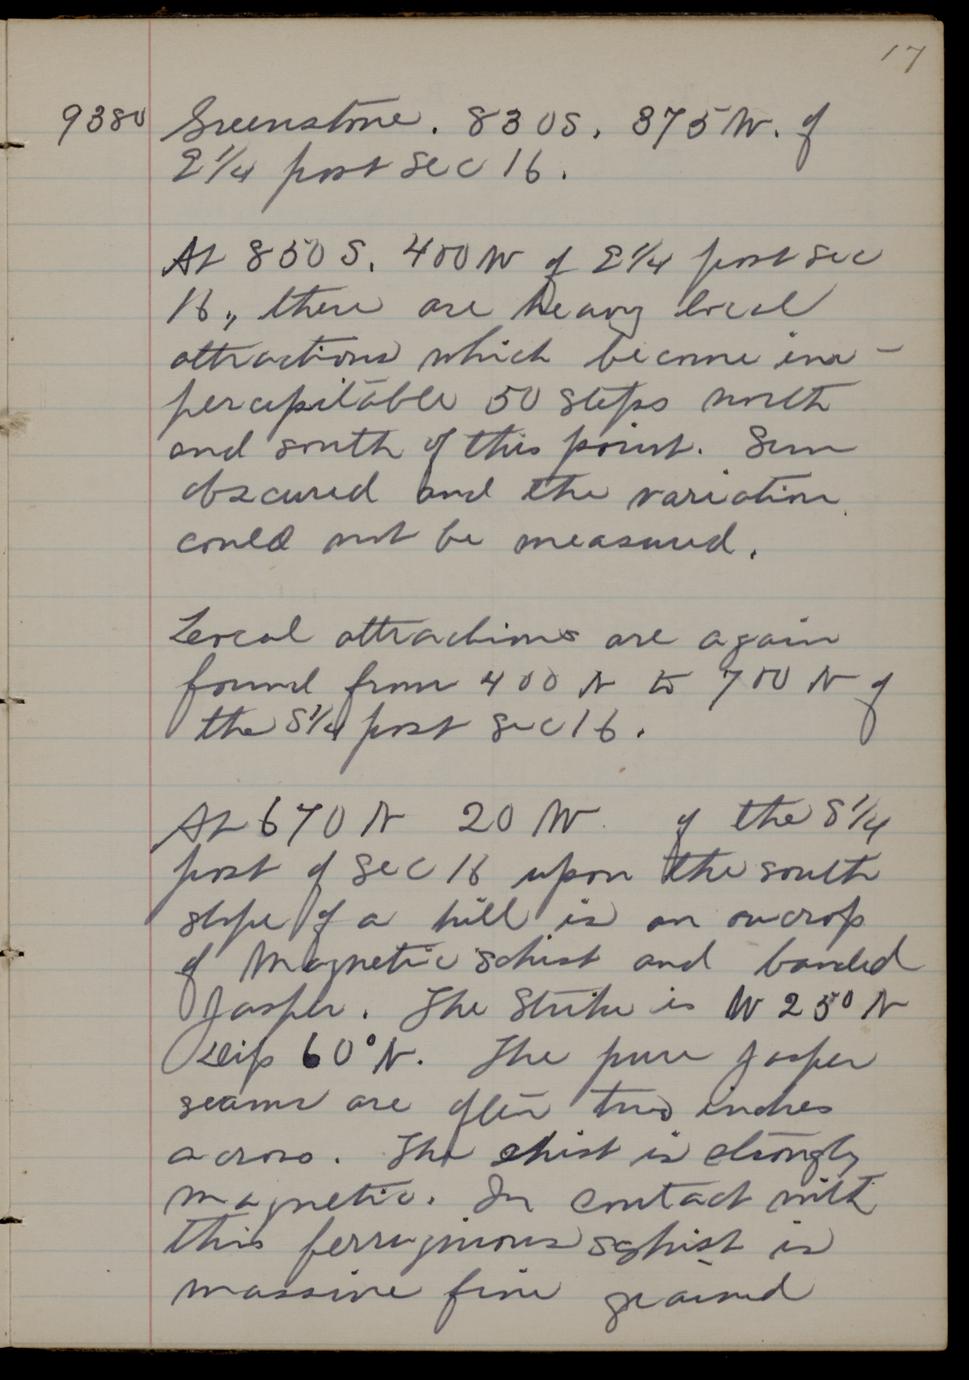 17
9380 Greenstone. 830S. 375W. of
E1/4 post sec 16.
At 850 S. 400W of E1/4 post sec
16, there are heavy local
attractions which become im-
percepitable 50 steps north
and south of this point. Sun
obscured and the variation
could not be measured.
Local attractions are again
found from 400 N to 700 N of
the S1/4 post sec 16.
At 670 N 20 W of the S1/4
post of sec 16 upon the south
slope of a hill is an oucrop
of Magnetic schist and banded
Jasper. The Strike is W 25° N
Dip 60° N. The pure Jasper
seams are often two inches
across. The shist is strongly
magnetic. In contact with
this ferruginous schist is
massive fine grained